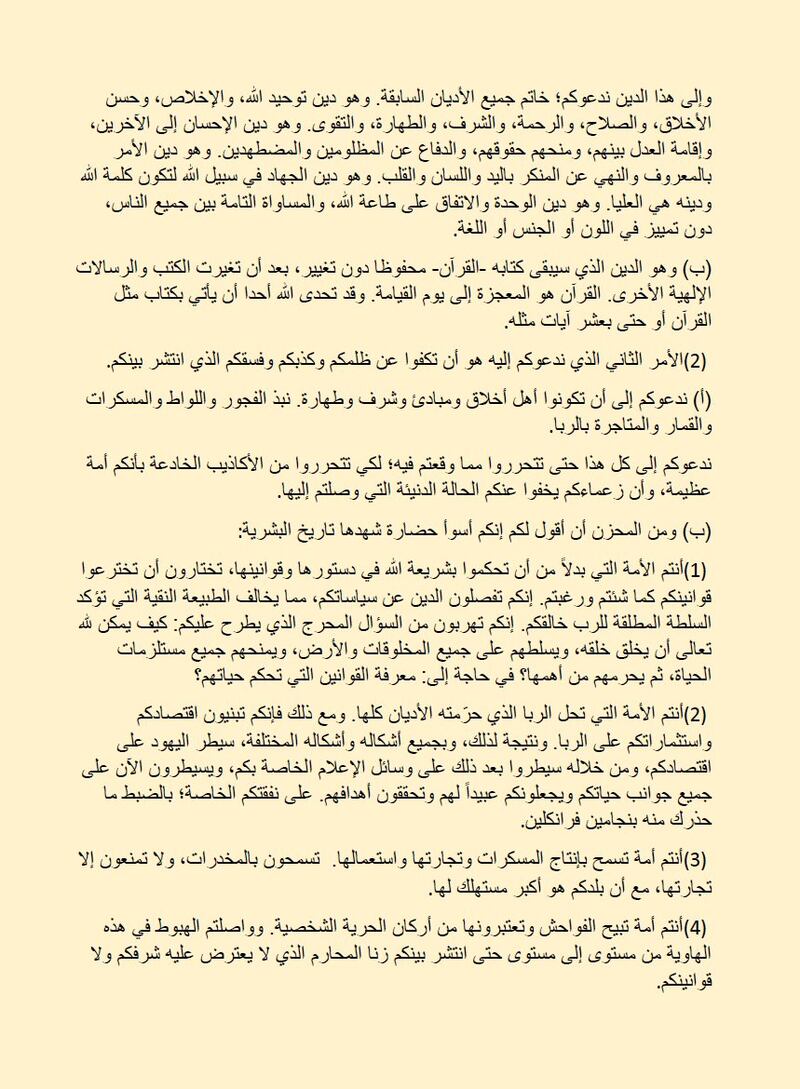 وإلى هذا الدين ندعوكم؛ خاتم جميع الأديان السابقة. وهو دين توحيد الله، والإخلاص، وحسن
الأخلاق، والصلاح، والرحمة، والشرف، والطهارة، والتقوى. وهو دين الإحسان إلى الآخرين،
وإقامة العدل بينهم، ومنحهم حقوقهم، والدفاع عن المظلومين والمضطهدين. وهو دين الأمر
بالمعروف والنهي عن المنكر باليد واللسان والقلب. وهو دين الجهاد في سبيل الله لتكون كلمة الله
ودينه هي العليا. وهو دين الوحدة والاتفاق على طاعة الله، والمساواة التامة بين جميع الناس،
دون تمييز في اللون أو الجنس أو اللغة.
(ب) وهو الدين الذي سيبقى كتابه -القرآن- محفوظا دون تغيير، بعد أن تغيرت الكتب والرسالات
الإلهية الأخرى. القرآن هو المعجزة إلى يوم القيامة. وقد تحدى الله أحدا أن يأتي بكتاب مثل
القرآن أو حتى بعشر آيات مثله.
(2)الأمر الثاني الذي ندعوكم إليه هو أن تكفوا عن ظلمكم وكذبكم وفسقكم الذي انتشر بينكم.
(أ) ندعوكم إلى أن تكونوا أهل أخلاق ومبادئ وشرف وطهارة. نبذ الفجور واللواط والمسكرات
والقمار والمتاجرة بالربا.
ندعوكم إلى كل هذا حتى تتحرروا مما وقعتم فيه؛ لكي تتحرروا من الأكاذيب الخادعة بأنكم أمة
عظيمة، وأن زعماءكم يخفوا عنكم الحالة الدنيئة التي وصلتم إليها.
(ب) ومن المحزن أن أقول لكم إنكم أسوأ حضارة شهدها تاريخ البشرية:
(1)أنتم الأمة التي بدلاً من أن تحكموا بشريعة الله في دستورها وقوانينها، تختارون أن تخترعوا
قوانينكم كما شئتم ورغبتم. إنكم تفصلون الدين عن سياساتكم، مما يخالف الطبيعة النقية التي تؤكد
السلطة المطلقة للرب خالقكم. إنكم تهربون من السؤال المحرج الذي يطرح عليكم: كيف يمكن لله
تعالى أن يخلق خلقه، ويسلطهم على جميع المخلوقات والأرض، ويمنحهم جميع مستلزمات
الحياة، ثم يحرمهم من أهمها؟ في حاجة إلى: معرفة القوانين التي تحكم حياتهم؟
(2)أنتم الأمة التي تحل الربا الذي حرّمته الأديان كلها. ومع ذلك فإنكم تبنيون اقتصادكم
واستثماراتكم على الربا. ونتيجة لذلك، وبجميع أشكاله وأشكاله المختلفة، سيطر اليهود على
اقتصادكم، ومن خلاله سيطروا بعد ذلك على وسائل الإعلام الخاصة بكم، ويسيطرون الآن على
جميع جوانب حياتكم ويجعلونكم عبيداً لهم وتحققون أهدافهم. على نفقتكم الخاصة؛ بالضبط ما
حذرك منه بنجامين فرانكلين.
(3)أنتم أمة تسمح بإنتاج المسكرات وتجارتها واستعمالها. تسمحون بالمخدرات، ولا تمنعون إلا
تجارتها، مع أن بلدكم هو أكبر مستهلك لها.
(4)أنتم أمة تبيح الفواحش وتعتبرونها من أركان الحرية الشخصية. وواصلتم الهبوط في هذه
الهاوية من مستوى إلى مستوى حتى انتشر بينكم زنا المحارم الذي لا يعترض عليه شرفكم ولا
قوانينكم.